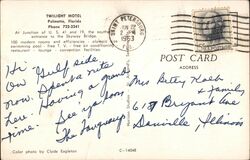 TWILIGHT MOTEL
Palmetto, Florida
Phone 722-3241
At Junction of U. S. 41 and 19, the southern
entrance to the Skyway Bridge.
100 modern rooms and efficiencies
swimming pool - free T. V. - free air conditioning
restaurant - lounge - convention facilities
Hi -
On Gulf side
now. Spends nite
here. Having a grand
time. See you soon.
The
Color photo by Clyde Eagleton
C-14048
SAINT PETERSBURG
PM
1963
POST CARD
Address
Mrs Betty
& family
617 Bryant Ave
Danville Illinois